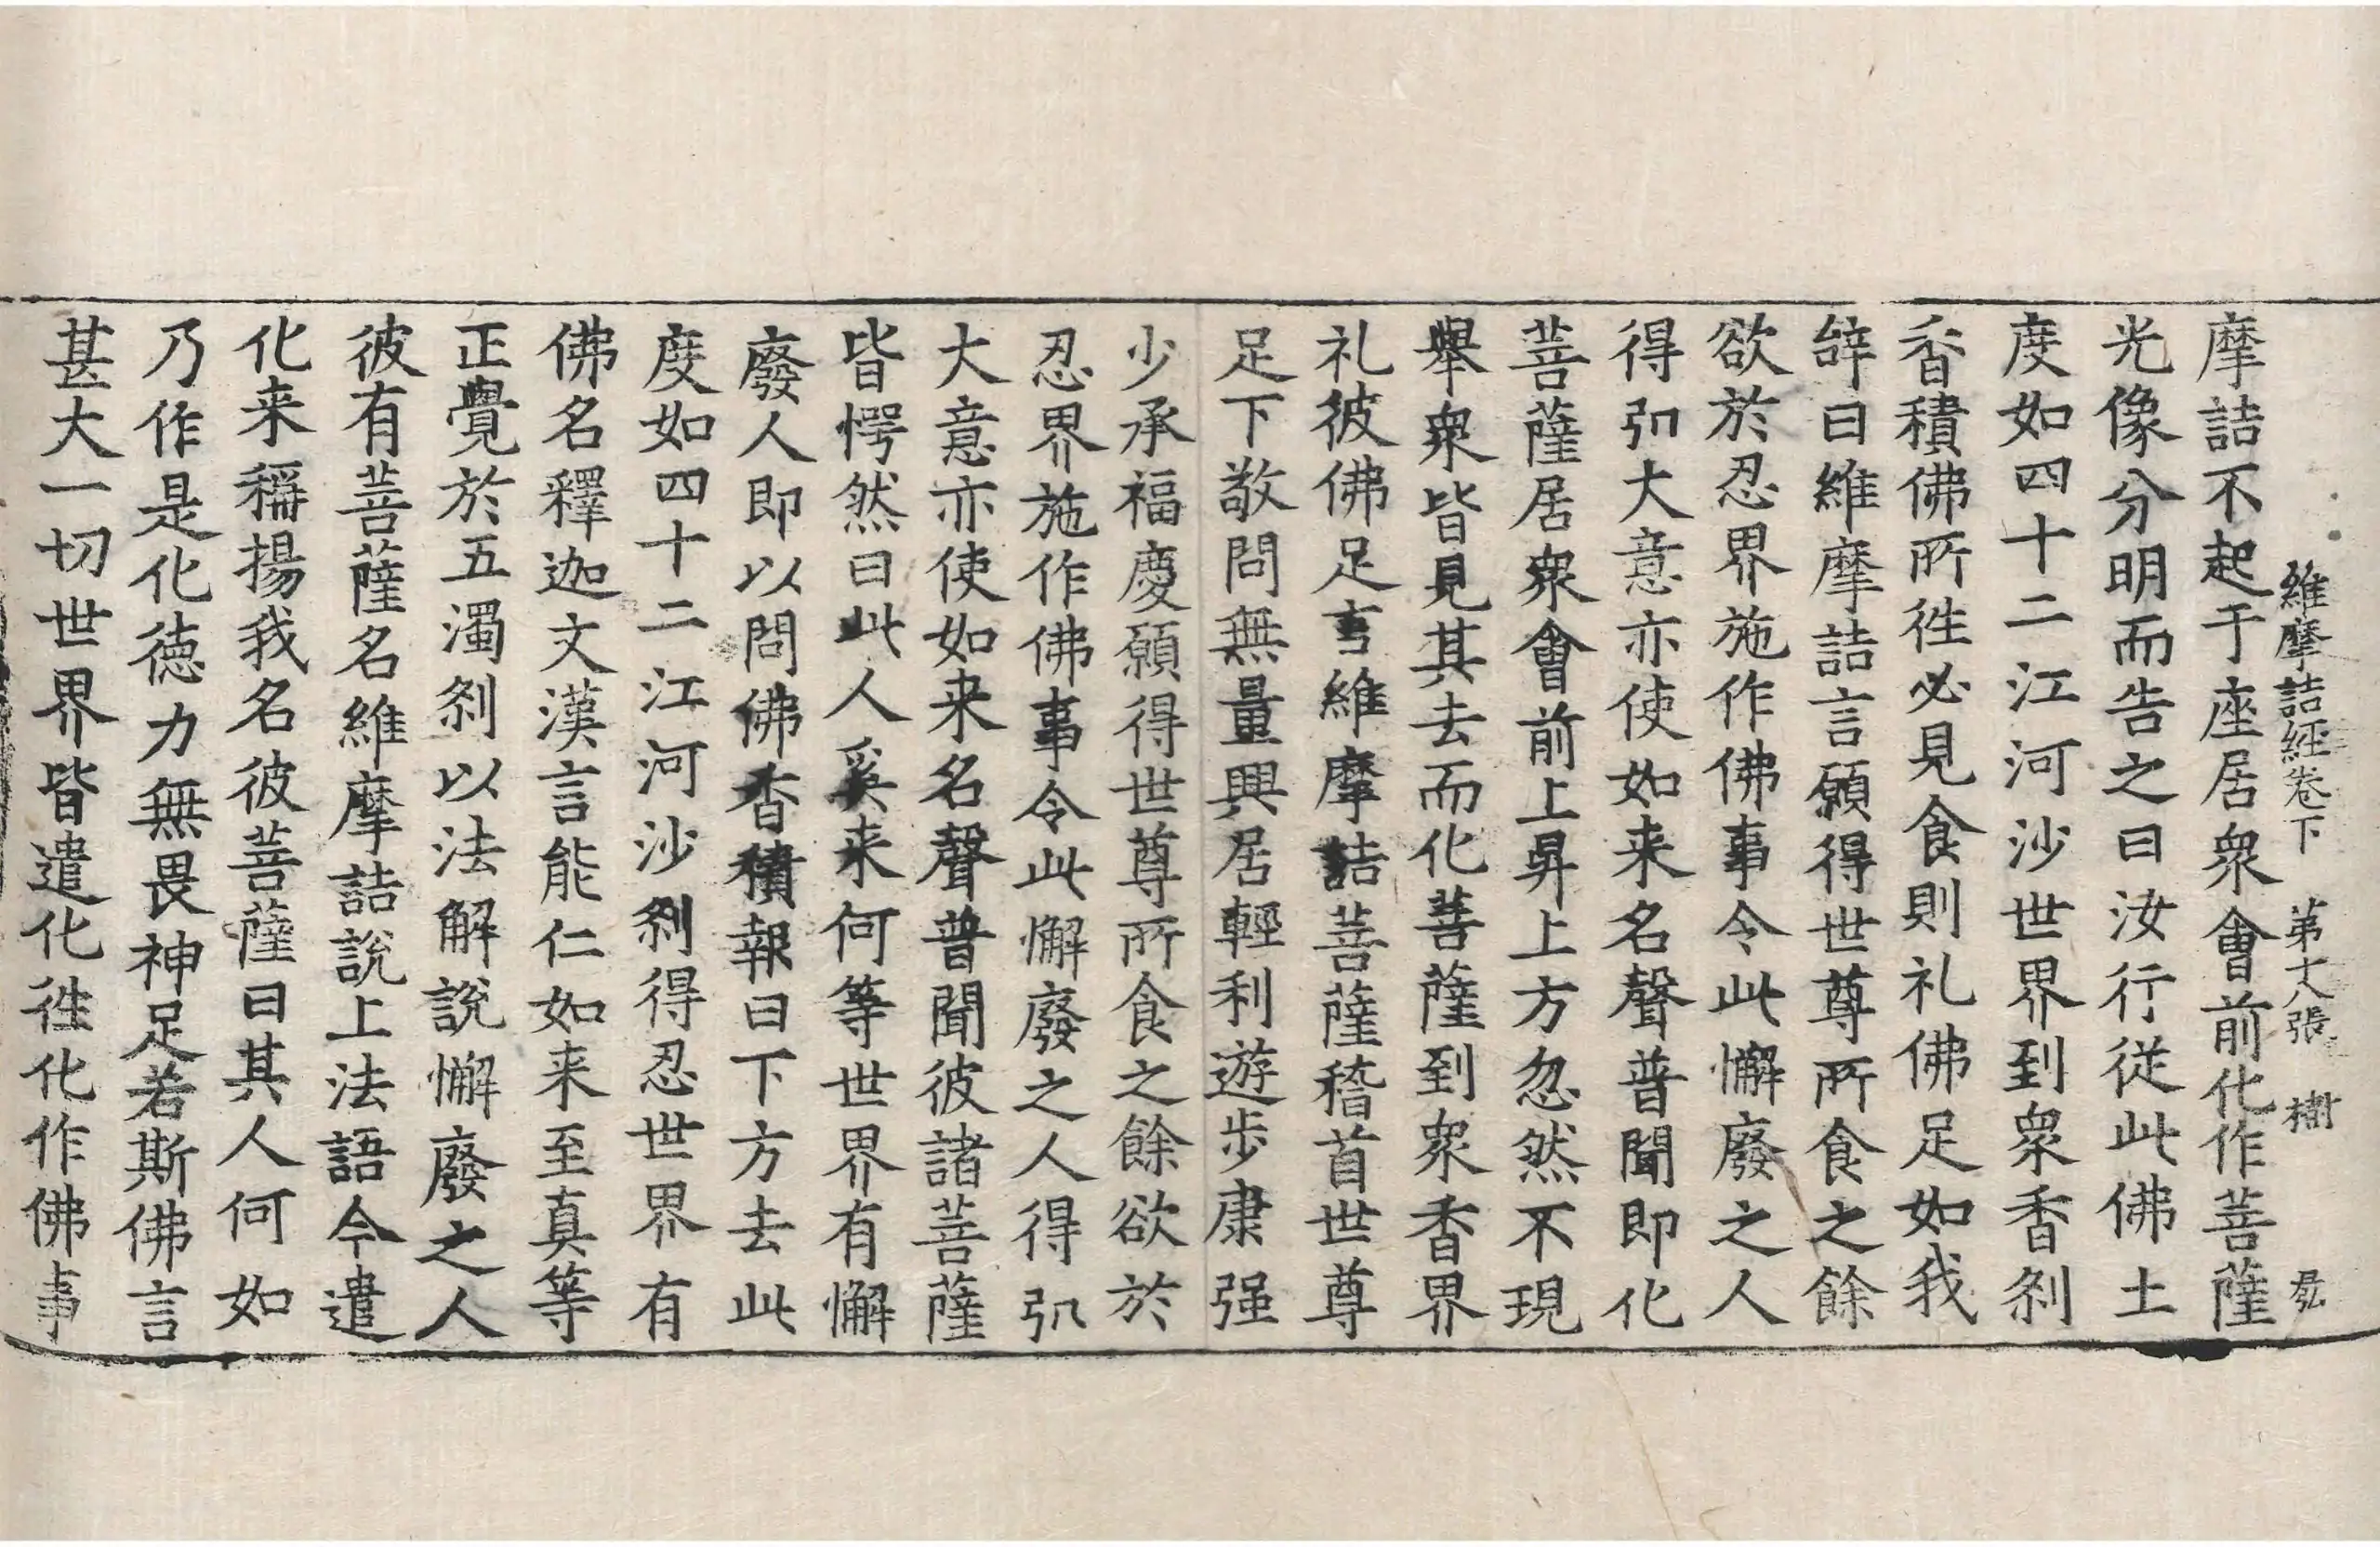 維摩詰經卷下　第十八張　樹
摩詰不起于座居衆會前化作菩薩
光像分明而告之曰汝行従此佛土
度如四十二江河沙世界到衆香刹
香積佛所徃必見食則礼佛足如我
辝曰維摩詰言願得世尊所食之餘
欲於忍界施作佛事令此懈廢之人
得弘大意亦使如来名聲普聞即化
菩薩居衆會前上昇上方忽然不現
舉衆皆見其去而化菩薩到衆香界
礼彼佛足言維摩詰菩薩稽首世尊
足下敬問無量興居輕利遊步康强
少承福慶願得世尊所食之餘欲於
忍界施作佛事令此懈廢之人得弘
大意亦使如来名聲普聞彼諸菩薩
皆愕然曰此人奚来何等世界有懈
廢人即以問佛香積報曰下方去此
度如四十二江河沙刹得忍世界有
佛名釋迦文漢言能仁如来至真等
正覺於五濁刹以法解說懈廢之人
彼有菩薩名維摩詰說上法語今遣
化来稱揚我名彼菩薩曰其人何如
乃作是化德力無畏神足若斯佛言
甚大一切世界皆遣化徃化作佛事